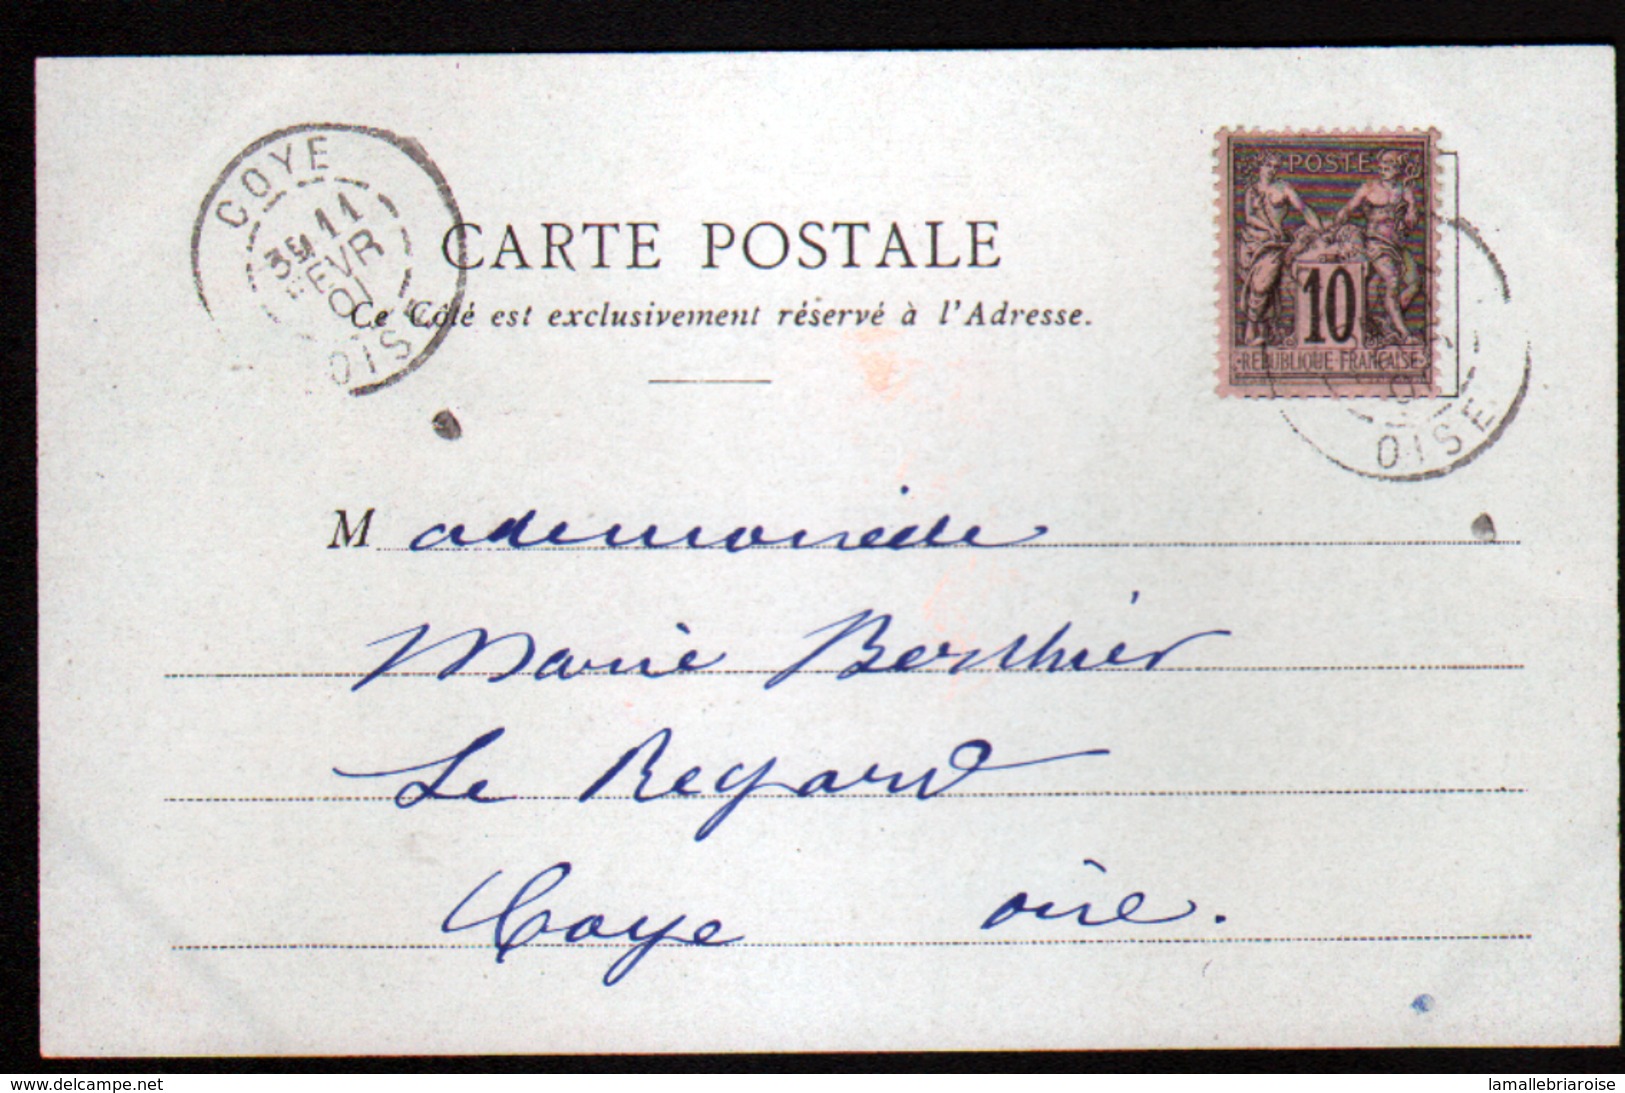 COYE
3E 11
FEVR
01
OISE
CARTE POSTALE
Ce Côté est exclusivement réservé à l'Adresse.
POSTE
10
REPUBLIQUE FRANÇAISE
01
OISE
Mademoiselle
Marie Berthier
Le Regard
Coye oise.
delcampe.net
lamallebriaroise